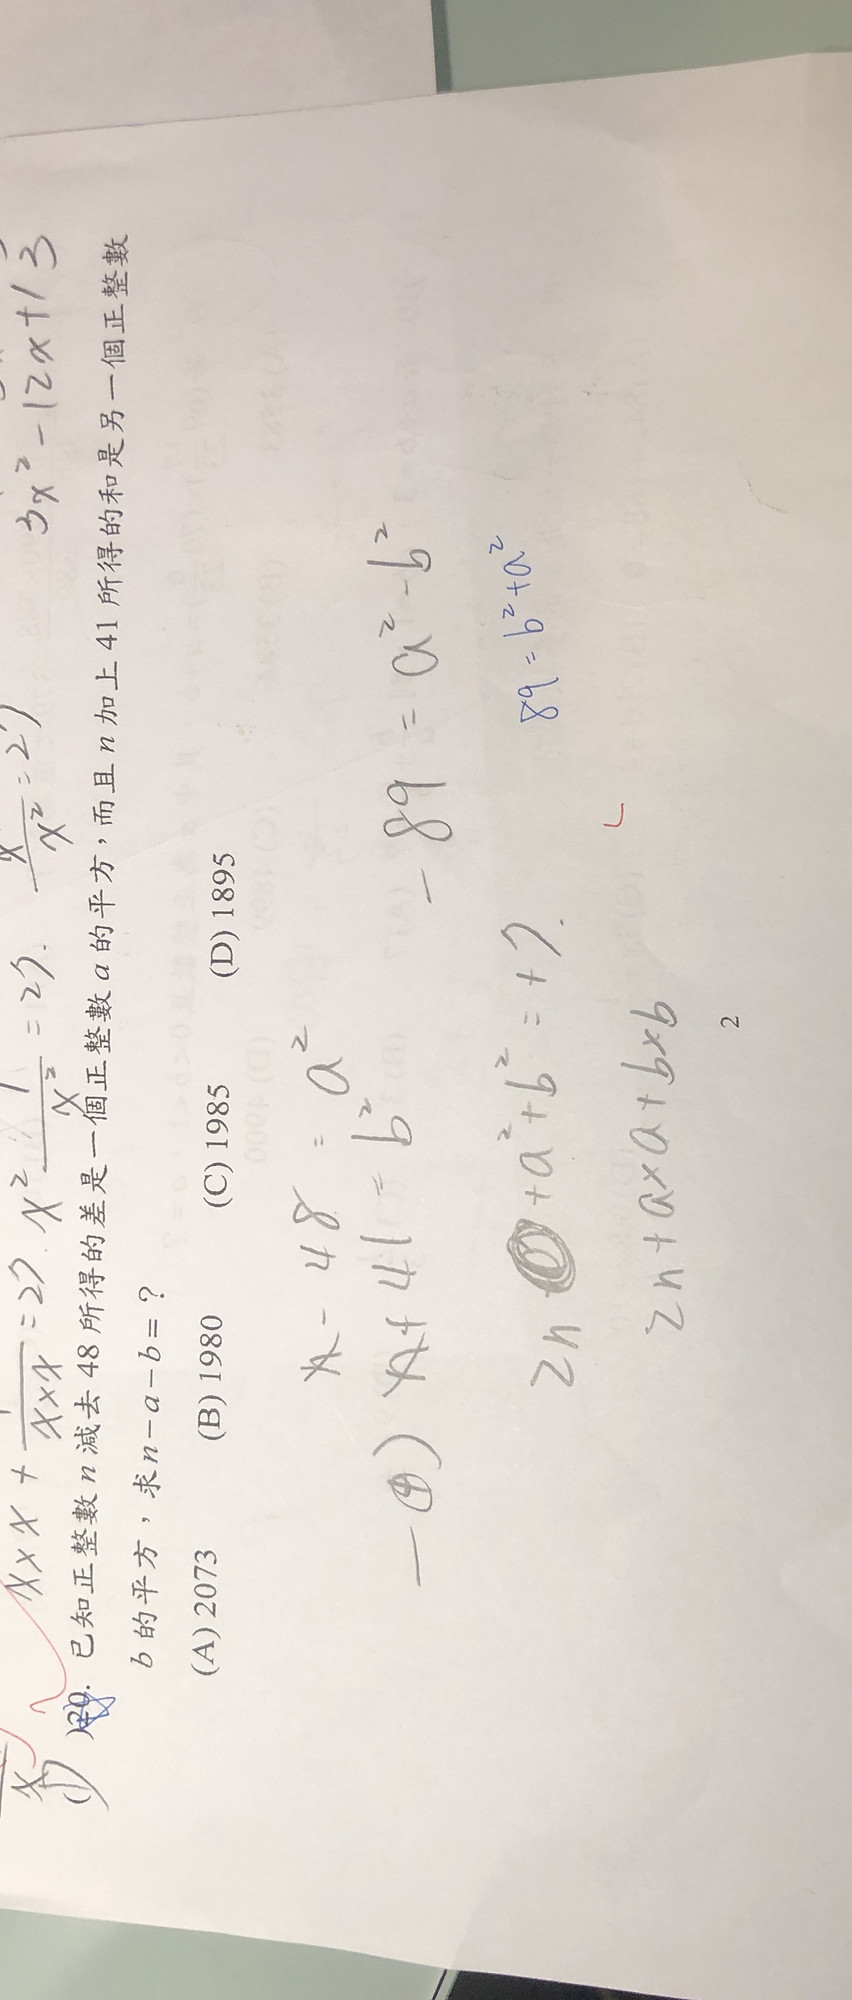 3x² - 12x + 13
x × x + 1/(x × x) = 27. x² 1/x² = 27. x/x² = 27
20. 已知正整數 n 減去 48 所得的差是一個正整數 a 的平方，而且 n 加上 41 所得的和是另一個正整數
b 的平方，求 n－a－b＝？
(A) 2073 (B) 1980 (C) 1985 (D) 1895
n - 48 = a²
-(+) n + 41 = b²
- 89 = a² - b²
2n + a² + b² = + 7.
89 = b² + a²
2n + a × a + b × b
2